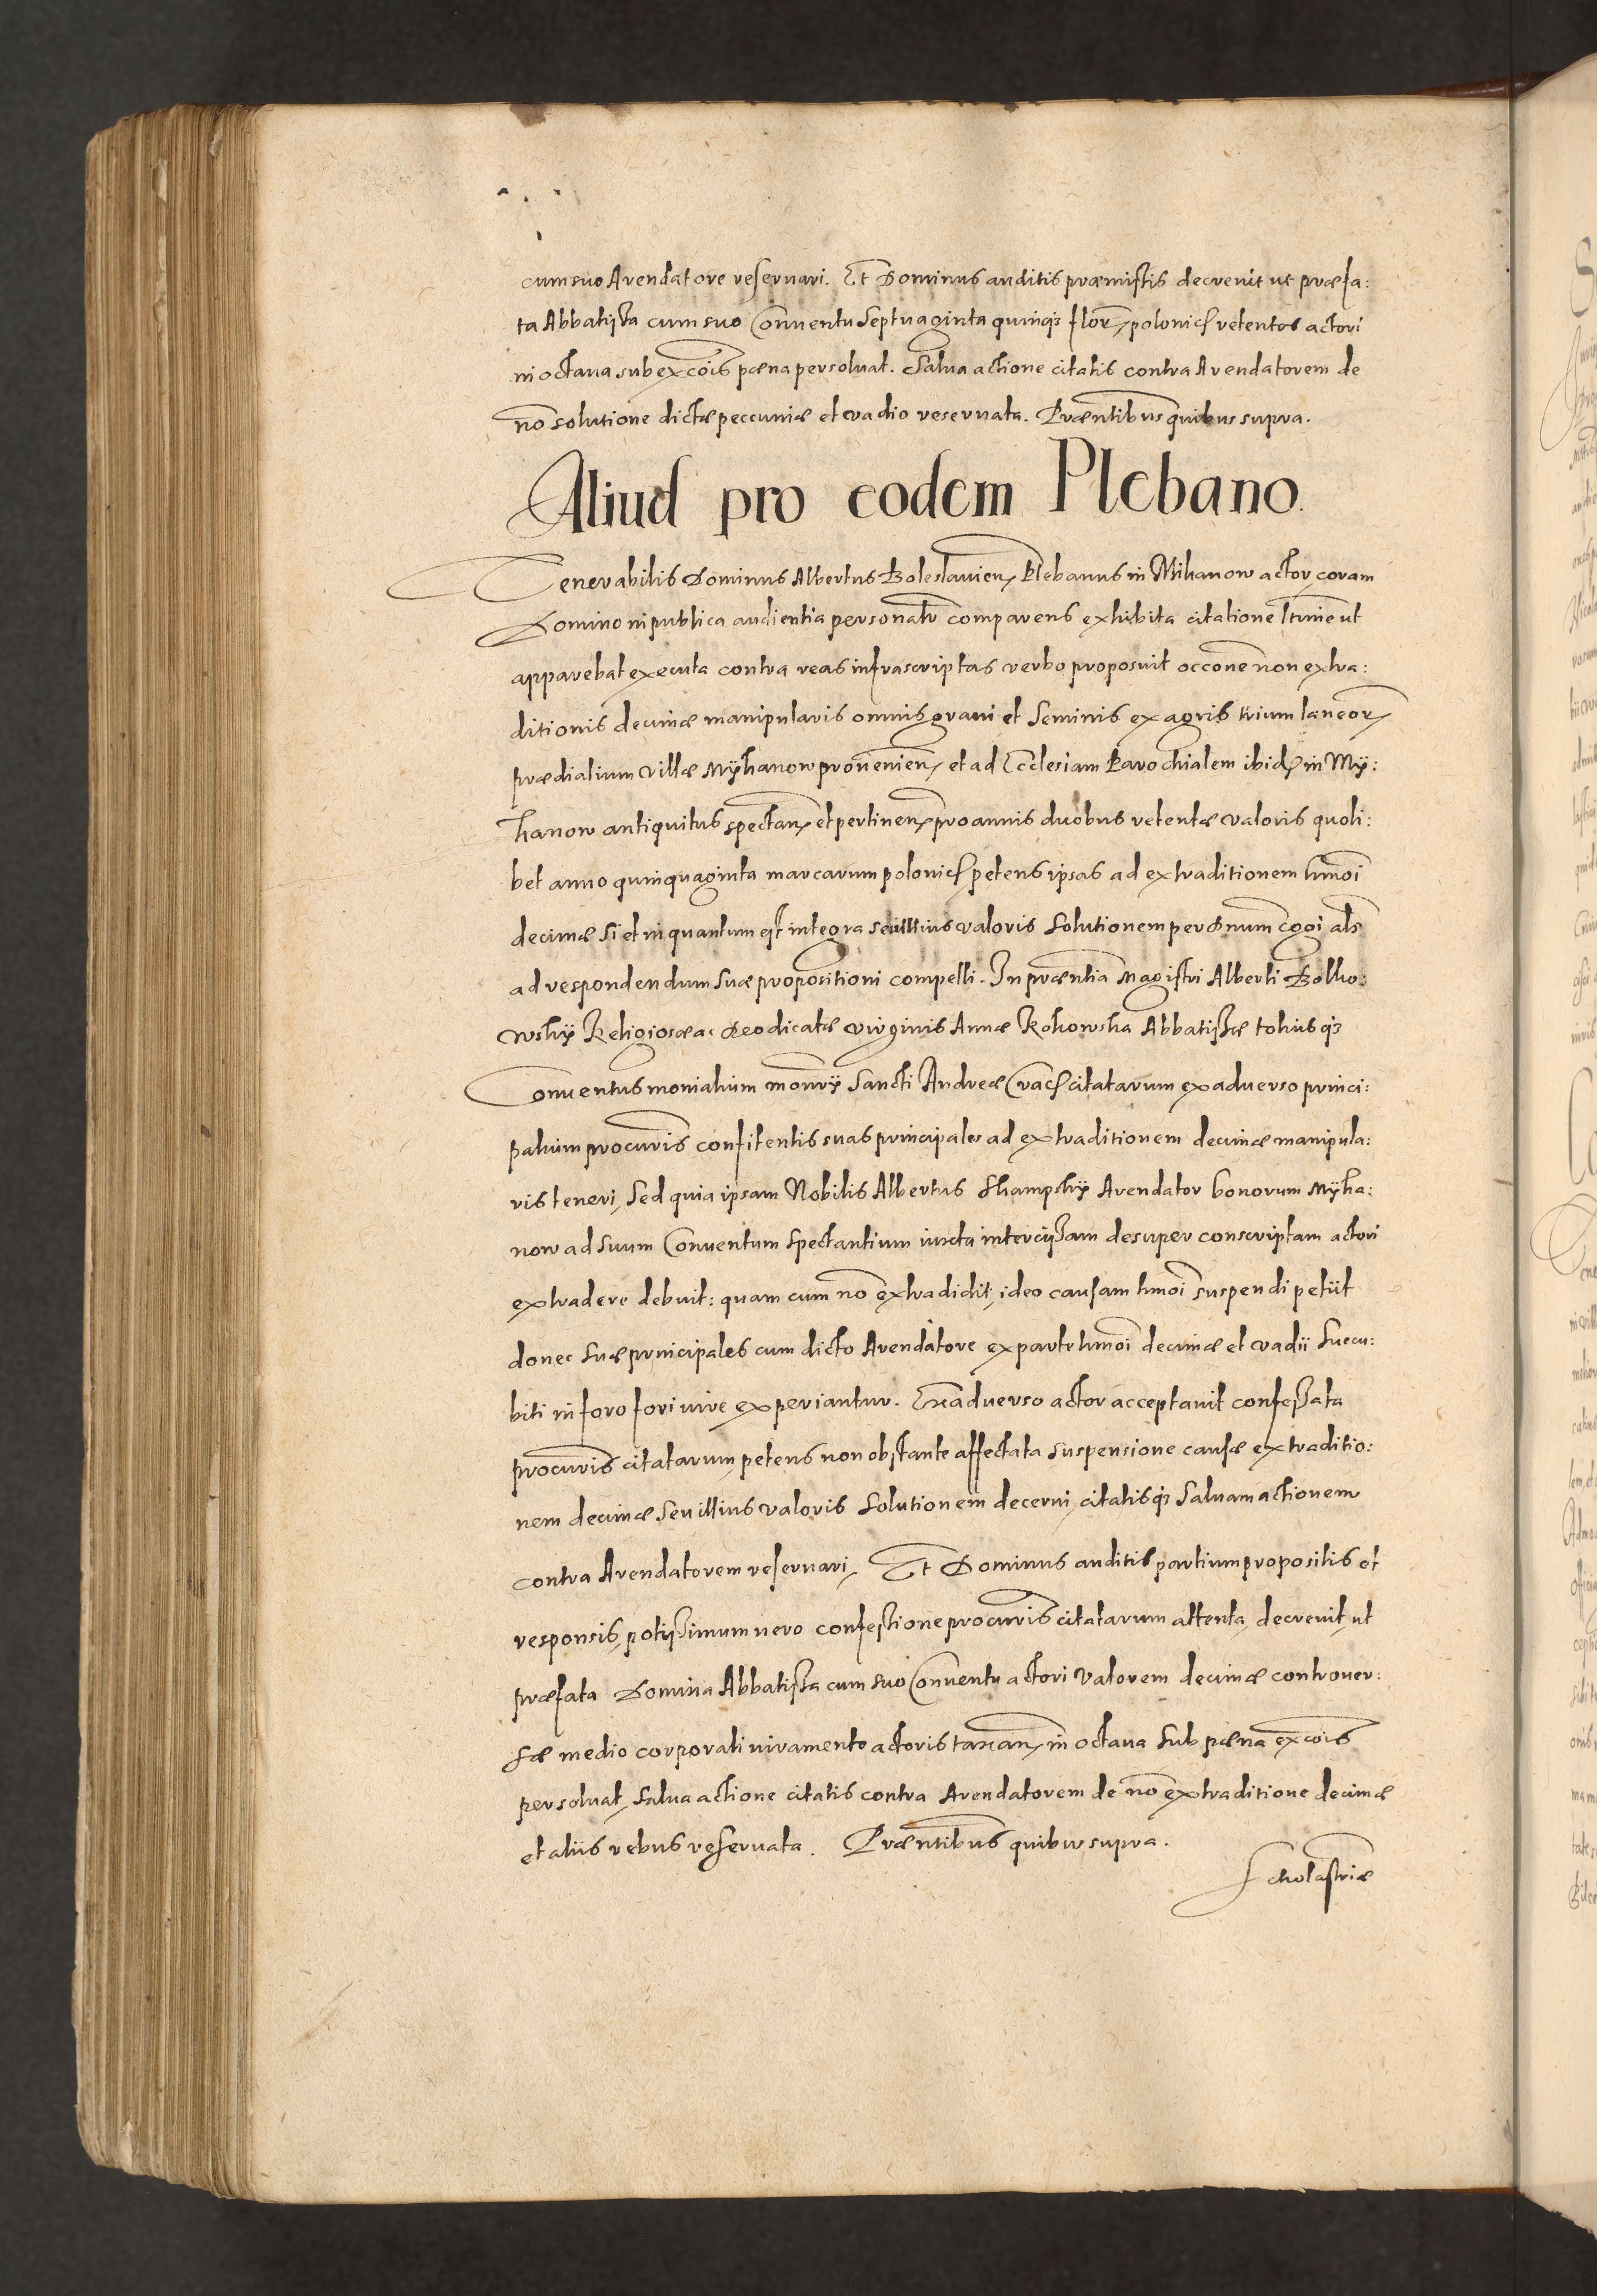 cum suo Arendatore reseruari. Et Dominus auditis præmissis decreuit ut præfa:
ta Abbatissa cum suo Conuentu Septuaginta quinq; flor, polonic retentos actori
in octaua sub excōis pæna persoluat. Salua actione citatis contra Arendatorem de
nō solutione dictæ peccuniæ et vadio reseruata. Præntibus quibus supra.
Aliud pro eodem Plebano.
Venerabilis Dominus Albertus Boleslauien, Plebanus in Mihanow actor coram
Domino in publica audientia personalr comparens exhibita citatione ltmē ut
apparebat executa contra reas infrascriptas verbo proposuit occone non extra:
ditionis decimæ manipularis omnis grani et Seminis ex agris trium laneor,
prædialium villæ Mÿhanow prouenien, et ad Ecclesiam Parochialem ibid in Mÿ:
hanow antiquitus spectan, et pertinen, pro annis duobus retentæ valoris quoli:
bet anno quinquaginta marcarum polonic petens ipsas ad extraditionem hmōi
decimæ si et in quantum est integra seu illius valoris solutionem per Dnum cogi als
ad respondendum suæ propositioni compelli. In præntia Magistri Alberti Bolko:
wskÿ Religiosæ ac Deodicatæ virginis Annæ Kokowska Abbatissæ totiusq;
Conuentus monialium monrÿ Sancti Andreæ Crac citatarum ex aduerso princi:
palium procuris confitentis suas principales ad extraditionem decimæ manipula:
ris teneri, Sed quia ipsam Nobilis Albertus Skampskÿ Arendator bonorum Mÿha:
now ad suum Conuentum Spectantium iuxta intercissam desuper conscriptam actori
extradere debuit: quam cum nō extradidit, ideo causam hmōi suspendi petiit
donec suæ principales cum dicto Arendatore ex parte hmōi decimæ et vadii succu:
biti in foro fori iure experiantur. Exaduerso actor acceptauit confessata
procuris citatarum petens non obstante affectata suspensione causæ extraditio:
nem decimæ seu illius valoris solutionem decerni, citatisq; saluam actionem
contra Arendatorem reseruari, Et Dominus auditis partium propositis et
responsis, potissimum uero confessione procuris citatarum attenta, decreuit, ut
præfata Domina Abbatissa cum suo Conuentu actori valorem decimæ controuer:
sæ medio corporali iuramento actoris taxan, in octaua sub pæna excōis
persoluat, salua actione citatis contra Arendatorem de nō extraditione decimæ
et aliis rebus reseruata. Præntibus quibus supra.
Scholastriæ